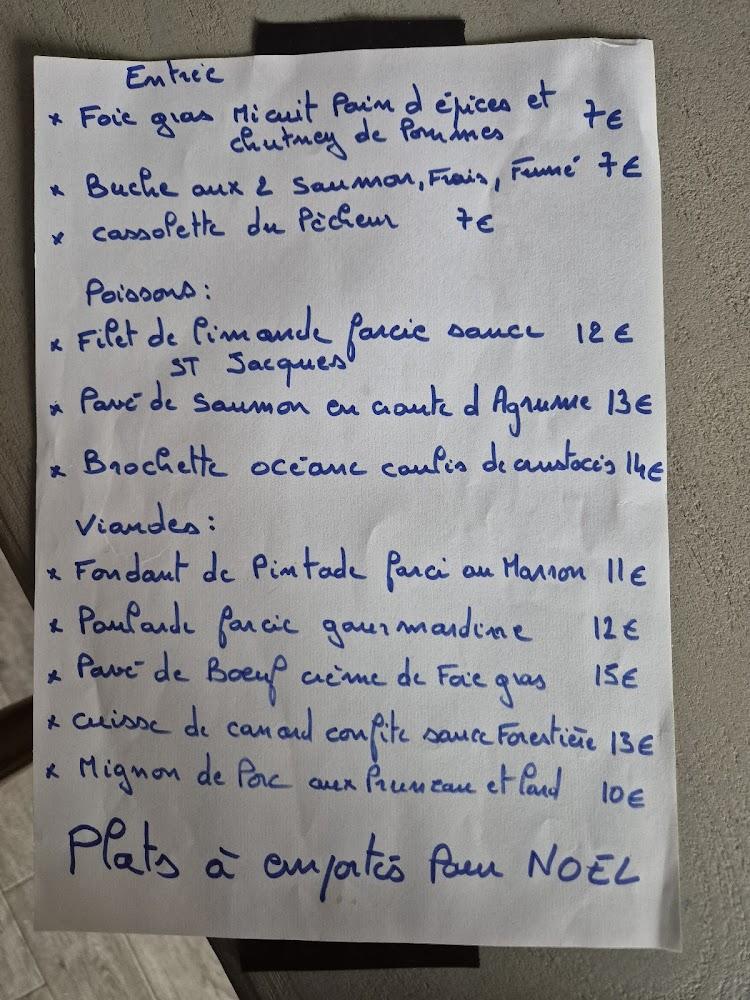 Entrée
* Foie gras Micuit Pain d épices et 7€
chutney de Pommes
* Buche aux 2 Saumon, Frais, Fumé 7€
* cassolette du Pêcheur 7€
Poissons :
* Filet de limande farcie sauce 12€
ST Jacques
* Pavé de Saumon en croute d Agrume 13€
* Brochette océane coulis de crustacés 14€
Viandes :
* Fondant de Pintade farci au Marron 11€
* Poularde farcie gourmandine 12€
* Pavé de Boeuf crème de Foie gras 15€
* cuisse de canard confite sauce Forestière 13€
* Mignon de Porc aux Pruneau et lard 10€
Plats à emportés Pour NOËL